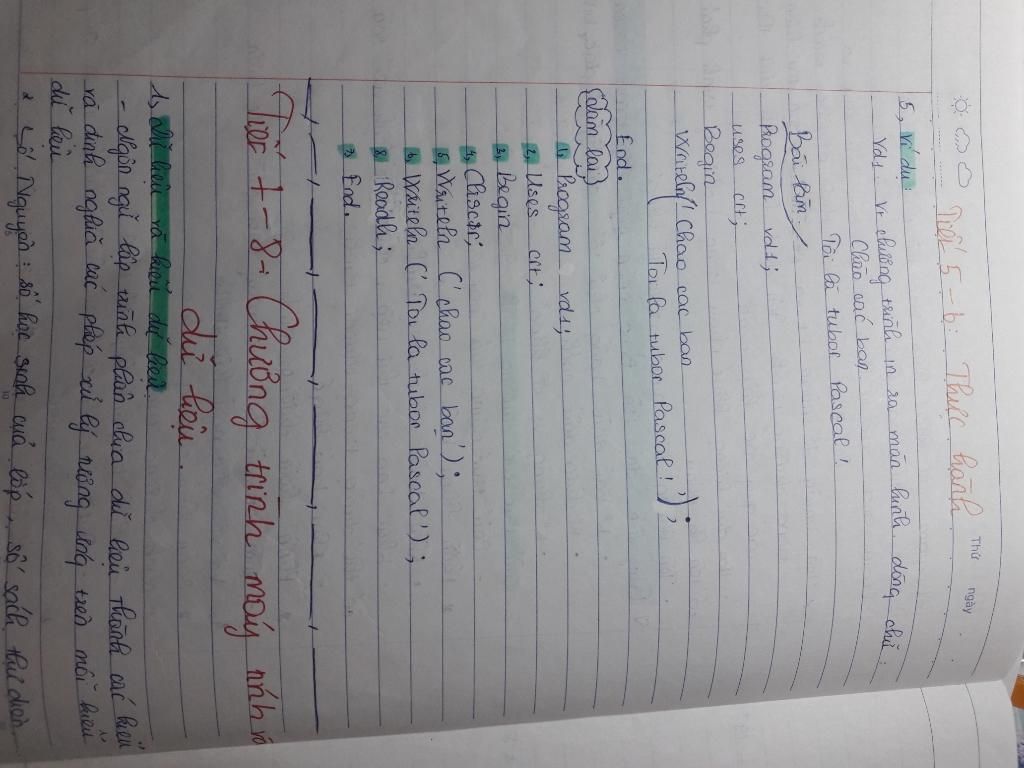 Thứ ngày
Tiết 5 - 6: Thực hành
5, Ví dụ
Vd1. Vt chương trình in ra màn hình dòng chữ:
Chào các bạn
Tôi là tubor Pascal!
Bài làm:
Program vd1;
uses crt;
Begin
Writeln('Chao cac ban
Toi la tubor Pascal!');
End.
Làm lại
1, Program vd1;
2, Uses crt;
3, Begin
4, Clrscr;
5, Writeln ('chao cac ban');
6, Writeln ('Toi la tubor Pascal');
8, Readln;
9, End.
Tiết 7 - 8: Chương trình máy tính và
dữ liệu.
1, Dữ liệu và kiểu dữ liệu
- Ngôn ngữ lập trình phân chia dữ liệu thành các kiểu
và định nghĩa các phép xử lý tương ứng trên mỗi kiểu
dữ liệu
* Số Nguyên: số học sinh của lớp, số sách thư viện